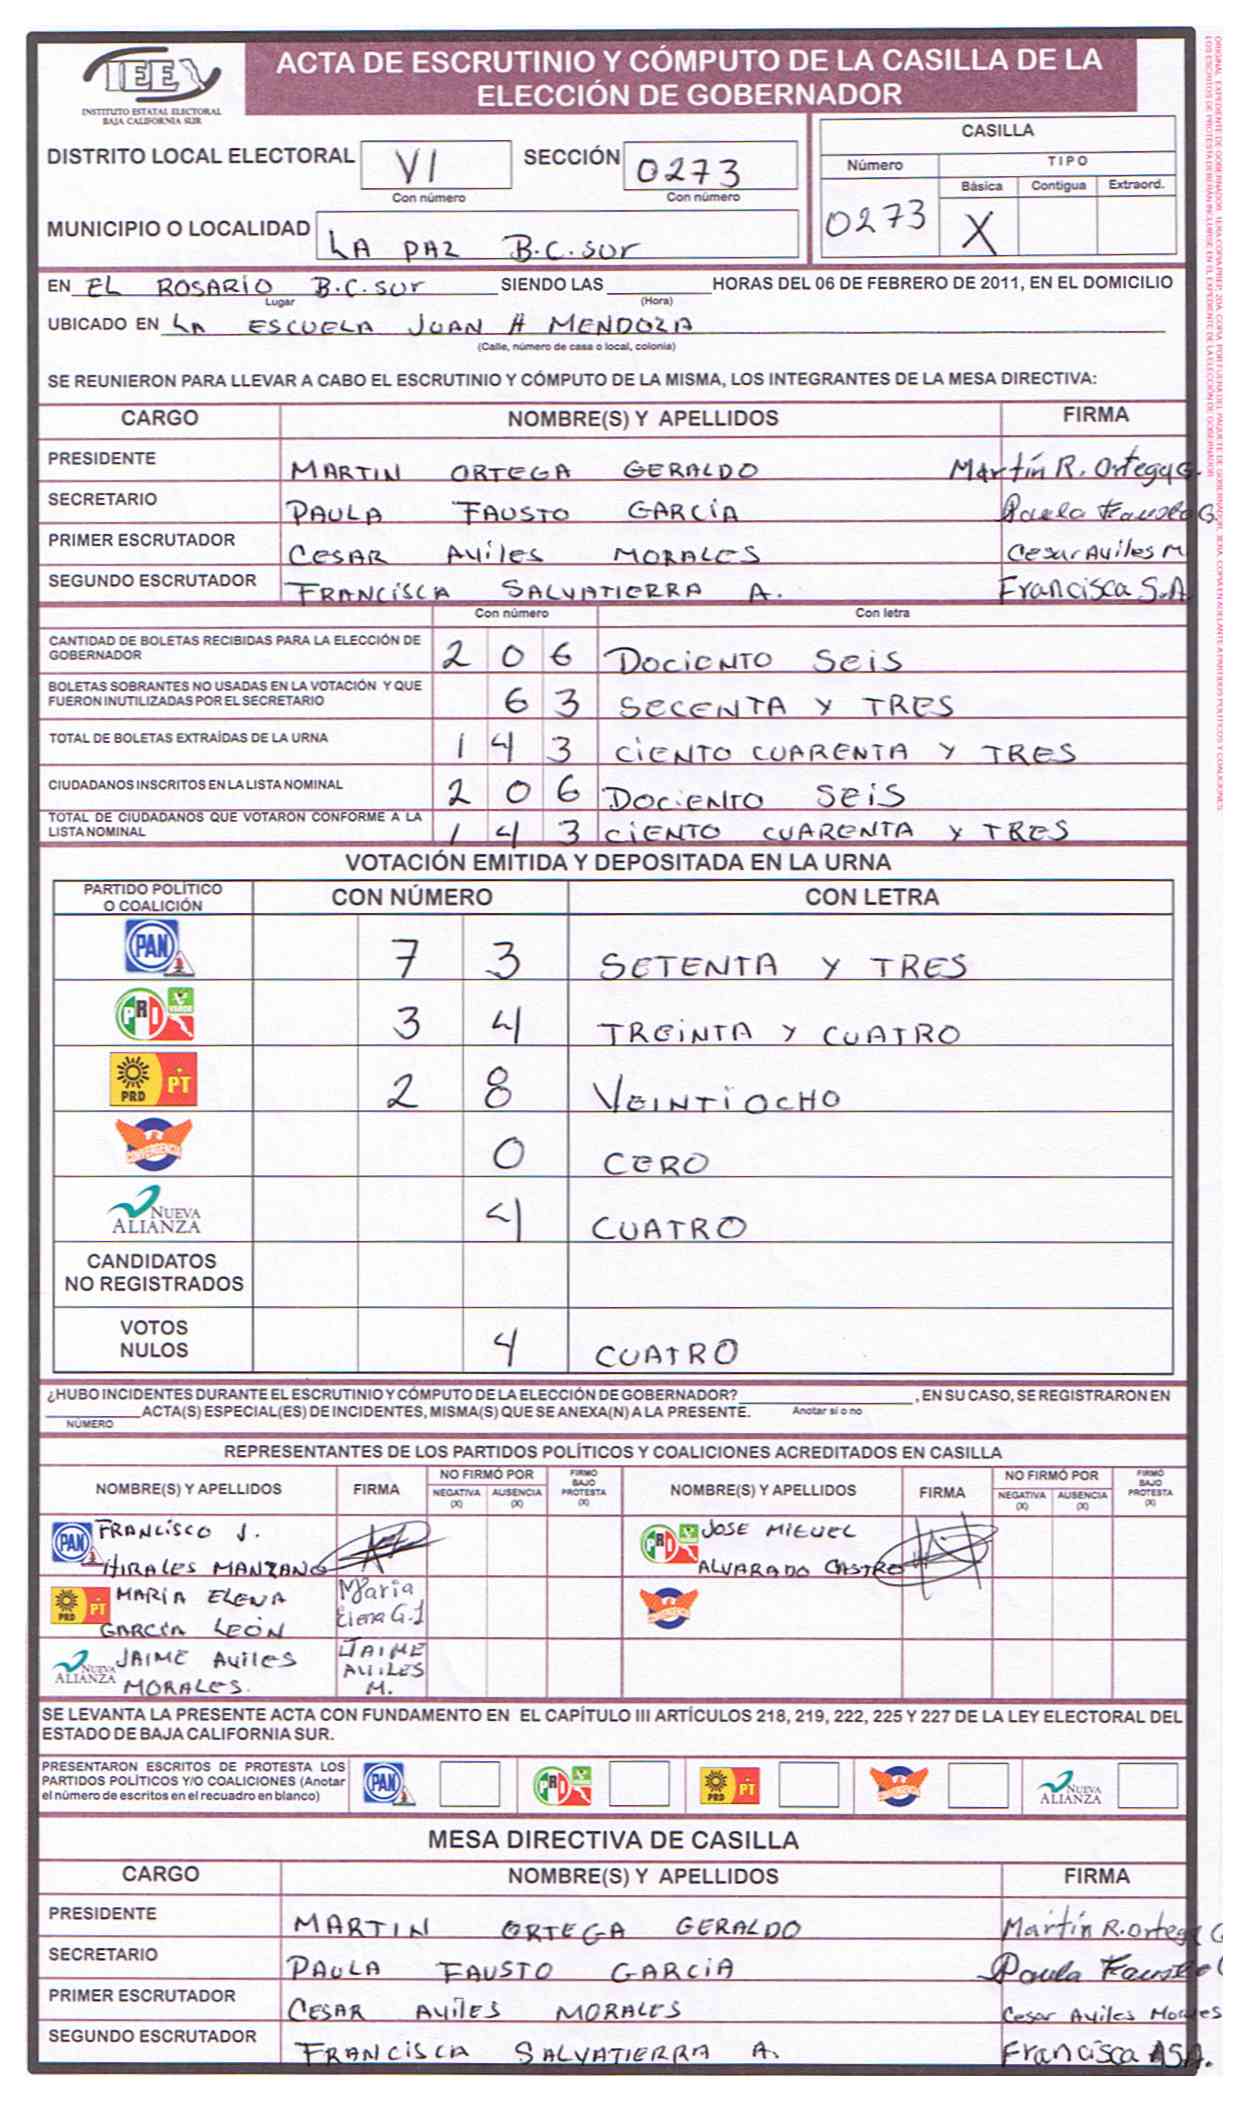 IEE
INSTITUTO ESTATAL ELECTORAL
BAJA CALIFORNIA SUR
ACTA DE ESCRUTINIO Y CÓMPUTO DE LA CASILLA DE LA
ELECCIÓN DE GOBERNADOR
DISTRITO LOCAL ELECTORAL VI SECCIÓN 0273
Con número Con número
MUNICIPIO O LOCALIDAD LA PAZ B.C.SUR
CASILLA
Número TIPO
Básica Contigua Extraord.
0273 X
EN EL ROSARIO B.C.SUR SIENDO LAS HORAS DEL 06 DE FEBRERO DE 2011, EN EL DOMICILIO
Lugar (Hora)
UBICADO EN LA ESCUELA JUAN H MENDOZA
(Calle, número de casa o local, colonia)
SE REUNIERON PARA LLEVAR A CABO EL ESCRUTINIO Y CÓMPUTO DE LA MISMA, LOS INTEGRANTES DE LA MESA DIRECTIVA:
CARGO NOMBRE(S) Y APELLIDOS FIRMA
PRESIDENTE MARTIN ORTEGA GERALDO Martín R. Ortega G.
SECRETARIO PAULA FAUSTO GARCÍA Paula Fausto G.
PRIMER ESCRUTADOR CESAR AViLES MORALES Cesar Aviles M
SEGUNDO ESCRUTADOR FRANCisCA SALVATIERRA A. Francisca S.A.
Con número Con letra
CANTIDAD DE BOLETAS RECIBIDAS PARA LA ELECCIÓN DE
GOBERNADOR 2 0 6 DOCiENTO SEiS
BOLETAS SOBRANTES NO USADAS EN LA VOTACIÓN Y QUE
FUERON INUTILIZADAS POR EL SECRETARIO 6 3 SECENTA Y TRES
TOTAL DE BOLETAS EXTRAÍDAS DE LA URNA 1 4 3 CIENTO CUARENTA Y TRES
CIUDADANOS INSCRITOS EN LA LISTA NOMINAL 2 0 6 DOCiENTO SEiS
TOTAL DE CIUDADANOS QUE VOTARON CONFORME A LA
LISTA NOMINAL 1 4 3 CIENTO CUARENTA Y TRES
VOTACIÓN EMITIDA Y DEPOSITADA EN LA URNA
PARTIDO POLÍTICO
O COALICIÓN CON NÚMERO CON LETRA
PAN 7 3 SETENTA Y TRES
PRI VERDE 3 4 TREINTA Y CUATRO
PRD PT 2 8 VEINTIOCHO
CONVERGENCIA 0 CERO
NUEVA ALIANZA 4 CUATRO
CANDIDATOS
NO REGISTRADOS
VOTOS
NULOS 4 CUATRO
¿HUBO INCIDENTES DURANTE EL ESCRUTINIO Y CÓMPUTO DE LA ELECCIÓN DE GOBERNADOR? , EN SU CASO, SE REGISTRARON EN
ACTA(S) ESPECIAL(ES) DE INCIDENTES, MISMA(S) QUE SE ANEXA(N) A LA PRESENTE. Anotar si o no
NÚMERO
REPRESENTANTES DE LOS PARTIDOS POLÍTICOS Y COALICIONES ACREDITADOS EN CASILLA
NOMBRE(S) Y APELLIDOS FIRMA NO FIRMÓ POR NEGATIVA (X) AUSENCIA (X) FIRMÓ BAJO PROTESTA (X) NOMBRE(S) Y APELLIDOS FIRMA NO FIRMÓ POR NEGATIVA (X) AUSENCIA (X) FIRMÓ BAJO PROTESTA (X)
PAN FRANCISCO J. PRI VERDE JOSE MIGUEL
HIRALES MANZANO ALVARADO CASTRO
PRD PT MARÍA ELENA Maria CONVERGENCIA
GARCÍA LEÓN Elena G.L
NUEVA ALIANZA JAIME AViLES JAIME
MORALES. AViLES
M.
SE LEVANTA LA PRESENTE ACTA CON FUNDAMENTO EN EL CAPÍTULO III ARTÍCULOS 218, 219, 222, 225 Y 227 DE LA LEY ELECTORAL DEL
ESTADO DE BAJA CALIFORNIA SUR.
PRESENTARON ESCRITOS DE PROTESTA LOS
PARTIDOS POLÍTICOS Y/O COALICIONES (Anotar
el número de escritos en el recuadro en blanco) PAN PRI VERDE PRD PT CONVERGENCIA NUEVA ALIANZA
MESA DIRECTIVA DE CASILLA
CARGO NOMBRE(S) Y APELLIDOS FIRMA
PRESIDENTE MARTIN ORTEGA GERALDO Martín R. Ortega G
SECRETARIO PAULA FAUSTO GARCÍA Paula Fausto
PRIMER ESCRUTADOR CESAR AViLES MORALES Cesar Aviles Morales
SEGUNDO ESCRUTADOR FRANCISCA SALVATIERRA A. Francisca A.S.A.